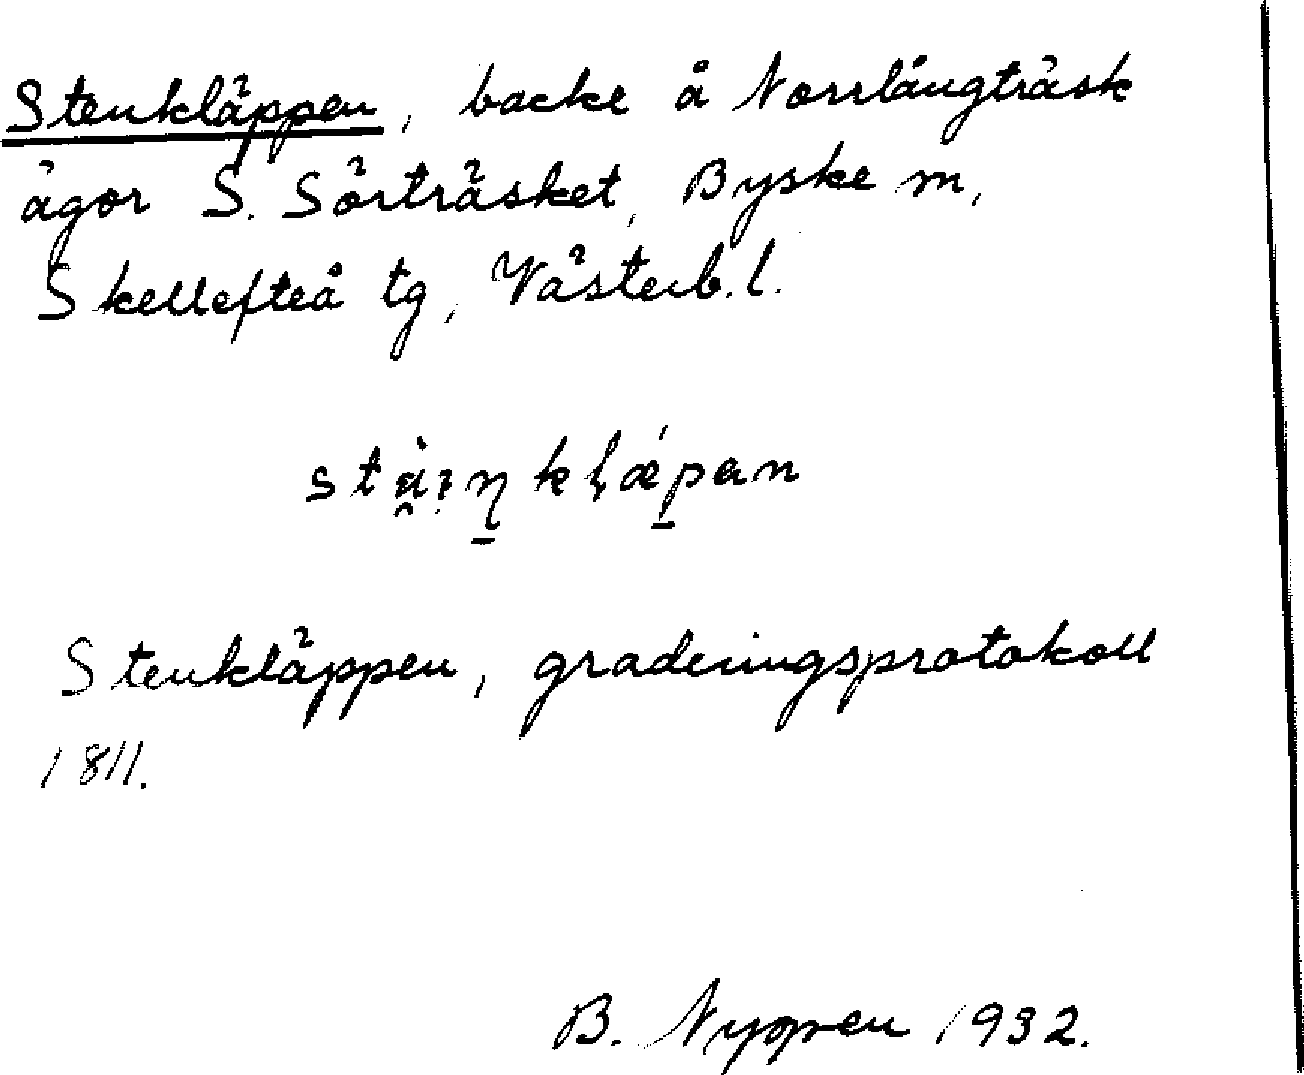 Stenkläppen, backe å Norrlångträsk
ägor S. Sörträsket, Byske sn,
Skellefteå tg, Västerb. l.
Stenkläppen, graderingsprotokoll
1811.
B. Nygren 1932.